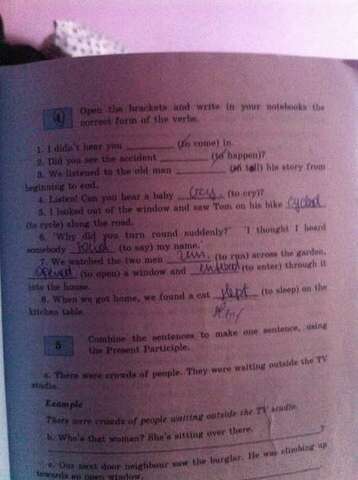 4 Open the brackets and write in your notebooks the
correct form of the verbs.
1. I didn't hear you ________ (to come) in.
2. Did you see the accident ________ (to happen)?
3. We listened to the old man ________ (to tell) his story from
beginning to end.
4. Listen! Can you hear a baby cry (to cry)?
5. I looked out of the window and saw Tom on his bike cycled
(to cycle) along the road.
6. "Why did you turn round suddenly?" "I thought I heard
somebody said (to say) my name."
7. We watched the two men run (to run) across the garden,
opened (to open) a window and entered (to enter) through it
into the house.
8. When we got home, we found a cat slept (to sleep) on the
kitchen table.
5 Combine the sentences to make one sentence, using
the Present Participle.
a. There were crowds of people. They were waiting outside the TV
studio.
Example
There were crowds of people waiting outside the TV studio.
b. Who's that woman? She's sitting over there.
________ ?
c. Our next door neighbour saw the burglar. He was climbing up
towards an open window.